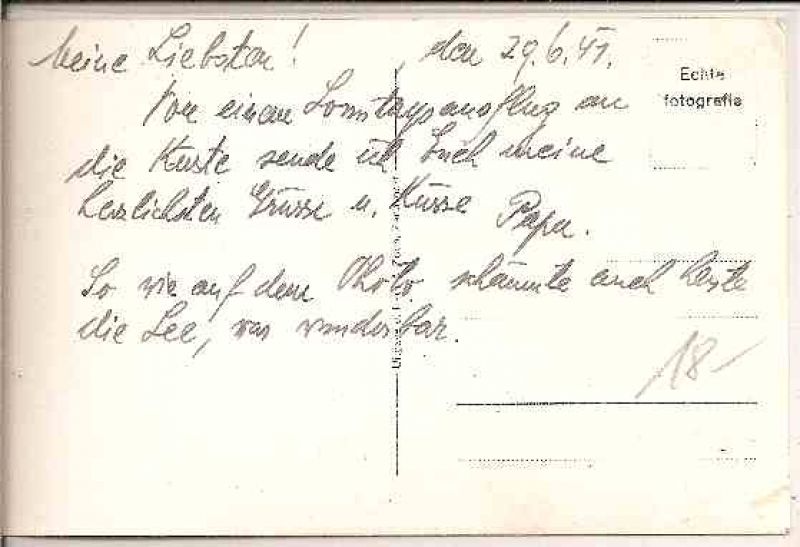 Meine Liebsten! , den 29.6.41.
Von einem Sonntagsausflug an
die Küste sende ich Euch meine
herzlichsten Grüsse u. Küsse
Papa.
So wie auf dem Photo schäumte auch heute
die See, war wunderbar.
Echte
fotografie
18-